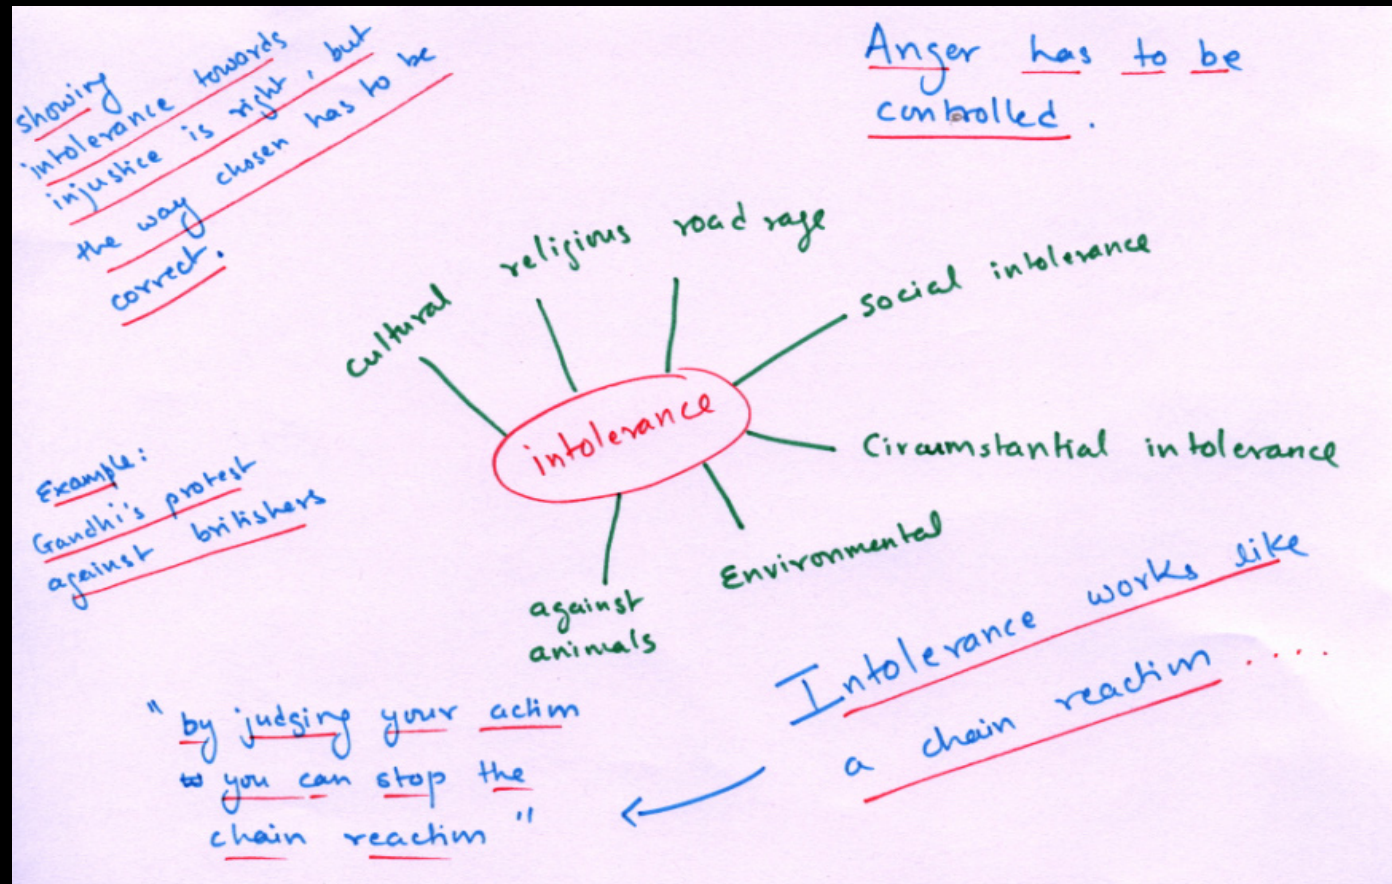 showing
intolerance towards
injustice is right, but
the way chosen has to be
correct.
Anger has to be
controlled.
cultural
religious
road rage
social intolerance
intolerance
Circumstantial intolerance
Environmental
against
animals
Example:
Gandhi's protest
against britishers
Intolerance works like
a chain reaction ....
" by judging your action
you can stop the
chain reaction "